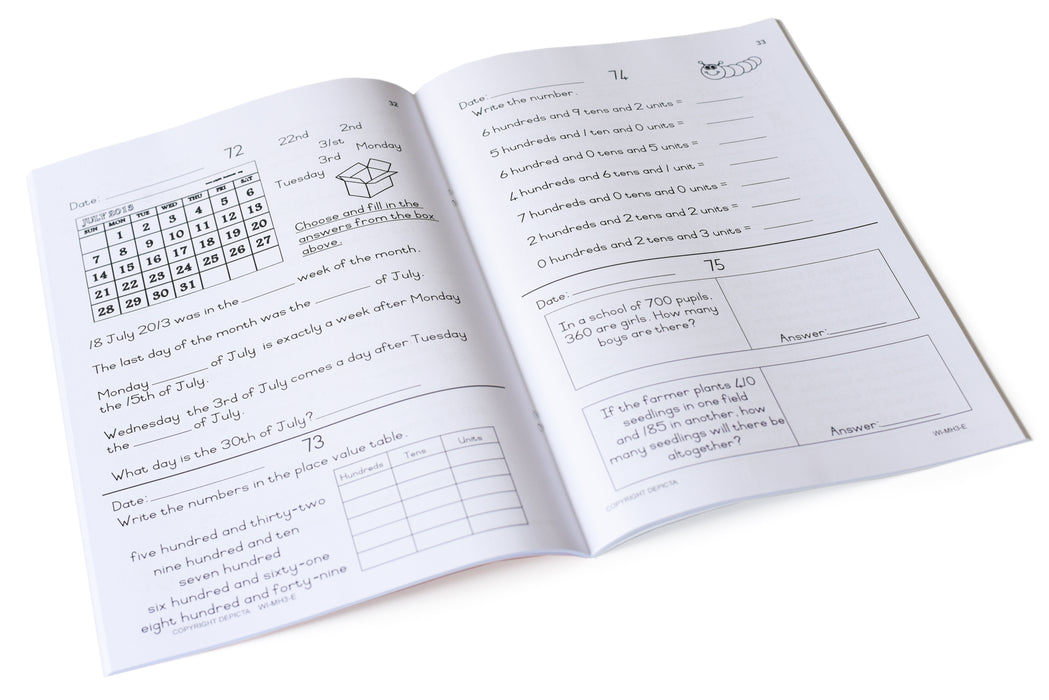 32
72
Date:
22nd 2nd
31st
3rd Monday
Tuesday
JULY 2013
SUN MON TUE WED THU FRI SAT
1 2 3 4 5 6
7 8 9 10 11 12 13
14 15 16 17 18 19 20
21 22 23 24 25 26 27
28 29 30 31
Choose and fill in the
answers from the box
above.
18 July 2013 was in the ______ week of the month.
The last day of the month was the ______ of July.
Monday ______ of July is exactly a week after Monday
the 15th of July.
Wednesday the 3rd of July comes a day after Tuesday
the ______ of July.
What day is the 30th of July? ______
73
Date:
Write the numbers in the place value table.
Hundreds Tens Units
five hundred and thirty-two
nine hundred and ten
seven hundred
six hundred and sixty-one
eight hundred and forty-nine
COPYRIGHT DEPICTA WI-MH3-E
33
74
Date:
Write the number.
6 hundreds and 9 tens and 2 units =
5 hundreds and 1 ten and 0 units =
6 hundred and 0 tens and 5 units =
4 hundreds and 6 tens and 1 unit =
7 hundreds and 0 tens and 0 units =
2 hundreds and 2 tens and 2 units =
0 hundreds and 2 tens and 3 units =
75
Date:
In a school of 700 pupils,
360 are girls. How many
boys are there?
Answer:
If the farmer plants 410
seedlings in one field
and 185 in another, how
many seedlings will there be
altogether?
Answer:
COPYRIGHT DEPICTA WI-MH3-E